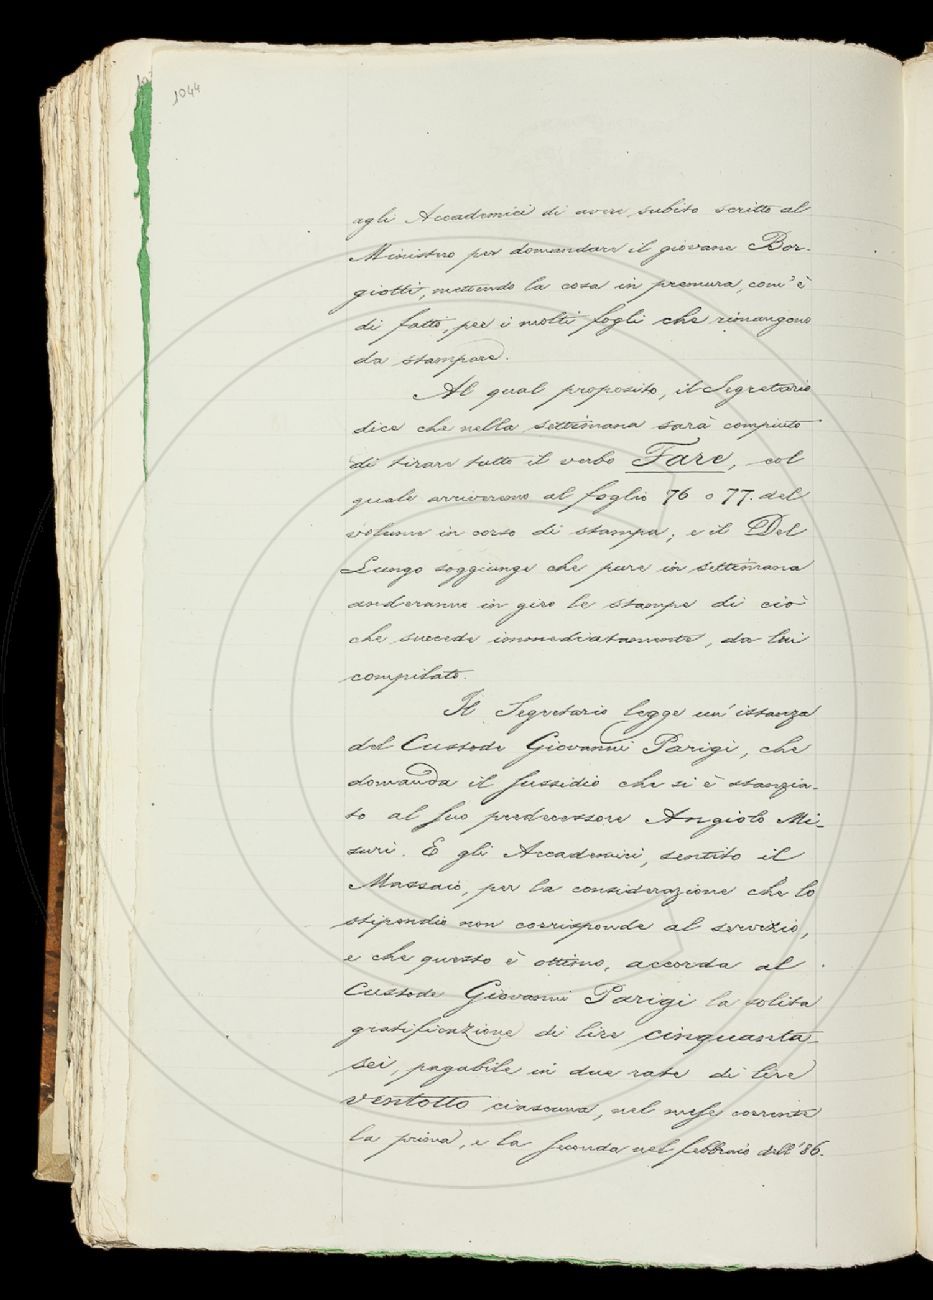 1044
agli Accademici di avere subito scritto al
Ministro per domandare il giovane Bor-
giotti, mettendo la cosa in premura, com'è
di fatto, per i molti fogli che rimangono
da stampare.
Al qual proposito, il Segretario
dice che nella settimana sarà compiuto
di tirare tutto il verbo Fare, col
quale arriveremo al foglio 76 o 77. del
volume in corso di stampa; e il Del
Lungo soggiunge che pure in settimana
anderanno in giro le stampe di ciò
che succede immediatamente, da lui
compilato.
Il Segretario legge un'istanza
del Custode Giovanni Parigi, che
domanda il sussidio che si è stanzia-
to al suo predecessore Angiolo Mi-
suri. E gli Accademici, sentito il
Massaio, per la considerazione che lo
stipendio non corrisponde al servizio,
e che questo è ottimo, accorda al
Custode Giovanni Parigi la solita
gratificazione di lire cinquanta
sei, pagabile in due rate di lire
ventotto ciascuna, nel mese corrente
la prima, e la seconda nel febbraio dell'86.